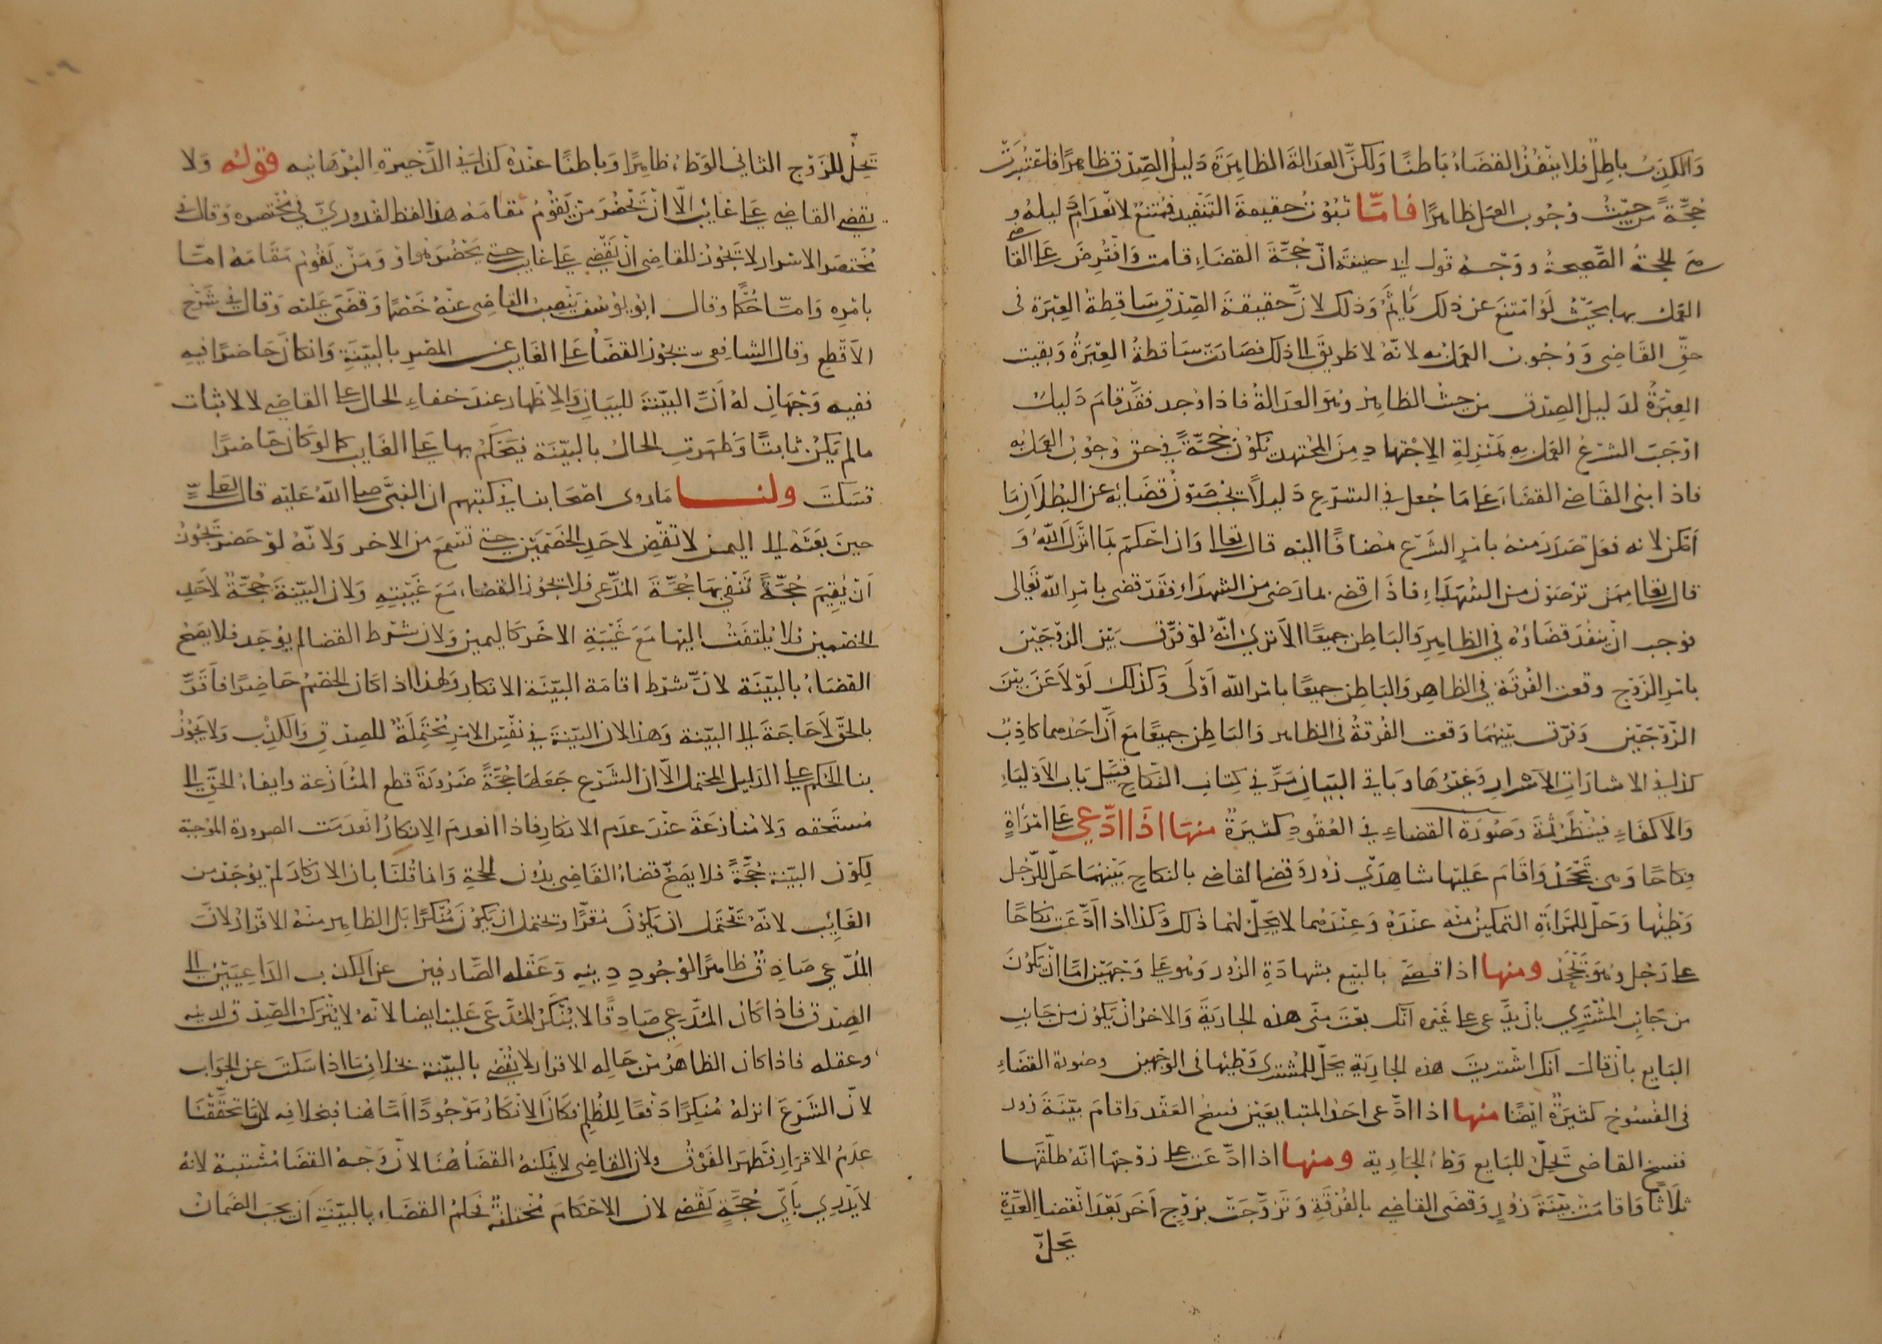 وَالكذِبُ باطِلٌ فلا ينْفُذُ القضَاءُ بَاطنًا وَلكنّ العدَالةَ الظاهِرَةَ دَليلُ الصِّدْق ظاهِرًا فاعْتُبرَتْ
حُجّةً من حيْثُ وُجُوب العمَل ظاهِرًا فامّا ثبُوتُ حقيقةَ التّنفيذ فممْتنعٌ لانعدَام دَليلهُ و
هيَ الحجةُ الصّحيحةُ ووَجْهُ قول ابي حنيفة انّ حُجّةَ القضَاءِ قامت وَافْتُرِضَ عَلى القاضى
العَملُ بها بحَيْثُ لَوْ امْتنعَ عن ذلك يَأثَمُ وَذلك لانّ حقيقةَ الصِّدْقِ سَاقِطةُ العِبْرَة فى
حقّ القَاضِى وَوُجُوب العمَل به لانّهُ لا طَرِيقَ الى ذلك فصَارَتْ سَاقطةُ العِبْرَةُ وَبقيت
العِبْرَةُ لدَليل الصِدْق من حيْثُ الظاهِرُ وهُوَ العدَالةُ فاذا وُجد فقَدْ قامَ دَليلٌ
اوْجَبَ الشرْعُ العمَل بهِ بمَنْزِلةِ الاِجْتهادِ مِنَ المُجْتهِد يَكوُنُ حُجّةً في حق وُجُوب العمَل بهِ
فاذا بنى القَاضِ القضَاءَ عَلى مَا جُعلَ في الشرْعِ دَليلاً يجبُ صَوْنُ قضَايهُ عن البُطلَانِ مَا
اَمْكنَ لانه فعل صَدَرَ منهُ بامرِ الشرْعِ مُضَافًا اليْه قال تعالى وَان احْكمْ بمَا انْزَلَ اللّهُ وَ
قال تعالى مِمَّنْ ترْضوْنَ من الشُهَداءِ فاذَا قضى بمَا رَضِىَ من الشهدَاءِ فقَدْ قضى بامْر اللّه تَعالى
فوجب انْ ينفُذ قضَاؤُهُ في الظاهِرِ وَالبَاطِن جميعًا الاَ ترَى انّهُ لوْ فرَّق بَيْن الزوْجَيْن
بامْرِ الزَوْج وقعت الفُرْقة في الظاهر وَالبَاطِن جميعًا بامْر اللّه اَوْلَى وَكذلك لَوْ لاَعَنَ بيْنَ
الزّوْجَيْن وَفرّق بيْنهُمَا وَقعت الفُرْقةُ في الظاهر وَالبَاطِن جميعًا مَعَ اَنّ احَدَهُما كاذِبٌ
كذا في الاشارَات الاَسْرار وَغيْرُهَا وَبَاقي البَيَان مَرّ في كِتاب النّكاحِ قُبَيْل بَاب الاَوْليَاءِ
وَالاَكفَاءِ فيُنْظرُ ثَمّةَ وَصُورَة القضاءِ في العُقُودِ كثيرَةٌ منهَا اذَا ادّعى عَلى امْرَأةٍ
نِكاحًا وَهى تجْحَدُ وَاقَامَ عَليْها شاهِدَىْ زُورٍ وَقضى القاضى بالنكاحِ بيْنهُمَا حَلّ للرّجُل
وَطيُها وَحَلّ للمَرْأةِ التمكينُ منْه عندَهُ وَعِنْدَهُما لا يحِلّ لهُما ذلك وَكذا اذا ادّعَت نكاحًا
على رَجُل وهُوَ يَجْحَدُ ومنها اذا قضىَ بالبيْع بشهادَةِ الزور وَهُوَ على وَجهَيْن امَّا انْ يَكونَ
من جَانبِ المُشْترِي بان يدَّعى على غَيْره انّك بعْت منّى هذه الجارِيَةَ وَالاخرُ انْ يَكوُن من جَانبِ
البَايعِ بانْ قالت انّك اشتريْتَ هذه الجارِيَةِ يحِلّ للمُشترى وَطيُها في الوَجْهين وصورة القضَاءِ
فى الفسُوخ كثيرَةٌ ايْضًا منها اذا ادّعى احَدُ المتبايعَيْن فسْخ العَقْد وَاقامَ بيّنةَ زور
ففسخَ القاضى تَحِلّ للبَايعِ وَطْءُ الجاريةِ ومنها اذا ادّعَت على زوْجها انّهُ طلّقَها
ثلاَثًا وَاقامَتْ بيّنَةَ زُورٍ وَقضَى القاضى بالفُرْقةِ وَتزَوَّجَتْ بزوْجٍ آخَرَ بَعْدَ انْقضاء العدّةِ
يحلّ
تَحِلُّ للزَوْج الثاني الوَطْءُ ظاهِرًا وَباطنًا عنْدهُ كذا في الذّخيرَة البُرْهَانيه قولهُ وَلا
يقضى القاضِي على غائِب الّا انْ يَحْضُرَ منْ يَقُومُ مقَامَهُ هذا لفظ القدوريّ في مختصره وَقال في
مُختصَر الاسْرار لا يَجُوزُ للقاضى انْ يَقْضِى على غايب حتى يَحْضُرَ هوَ اوْ وَمَنْ يَقُومُ مَقَامَهُ امّا
بامْرِه وَامّا حُكمًا وقال ابو يُوسُف يَنصِبُ القاضِى عنْهُ خَصْمًا وَقضَى عَليْه وَقالَ في شَرْح
الاَقْطع وقال الشافعى يجُوز القضَاءُ على الغَايب عن المصْرِ بالبيّنَةِ وَانْ كانَ حَاضِرًا فيهِ
ففيهِ وَجْهَانِ لهُ اَنّ البيّنةَ للبيَانِ وَالاِظهار عندَ خفاءِ الحال على القاضِى لا لاثبات
مالم يَكُنْ ثابتًا وَظهَرَتِ الحالُ بالبيّنَة فيَحْكُمُ بها عَلى الغَايب كما لوْ كانَ حَاضِرًا
فسَكتَ ولنا مَا روى اصْحَابنا في كتبهم ان النبىّ صلى اللّهُ عَليْه قال لعَلىٍّ
حينَ بَعثَهُ الى اليمن لا تقْضِ لاحَدِ الخصْمَيْن حتى تسْمَعَ من الاخر وَلانّهُ لوْ حَضَرَ يَجُوزُ
اَنْ يُقِيمَ حُجّةً تَنْفِي بهَا حُجّةَ المُدّعى فلا يجُوزُ القضاءُ مَعَ غَيْبَتِهِ وَلان البيّنةَ حُجّةٌ لاَحَدِ
الخصْمين فلا يُلتفَتُ اليْها مَعَ غَيْبَةِ الاخَر كاليمين وَلان شَرْط القضا لم يوُجَد فلا يَصِحُ
القضَاءُ بالبيّنَة لانّ شرْط اقامَة البيّنَة الانكار وَلهذا اذا كانَ الخصْمُ حَاضِرًا فأَقَرَّ
بالحَقّ لاَ حَاجَةَ الى البيّنة وَهذا لان البيّنةَ في نفْسِ الامْرِ مُحْتَمِلَةٌ للصِدْقِ وَالكذِبِ وَلا يَجُوزُ
بنا الحُكم على الدَليل المحتمل الاّ ان الشرْعَ جَعَلهَا حُجّةً ضَرُورَةَ قطع المُنَازَعة وايفاءُ الحَقّ الى
مُسْتحَقه وَلا مُنازعَةَ عنْدَ عدَم الانكار فاذا انعدمَ الاِنكارُ انعَدَمت الضرورَة المُوجِبَة
لِكوْن البيّنةِ حُجّةً فلا يَصِحّ قضاءُ القَاضِى بدُون الحجّة وَانما قُلْنَا بان الانكارَ لمْ يُوجَد من
الغَايِب لانّهُ يَحْتمَل ان يَكوُن مُقرًّا ويحتمل ان يكوُنَ مُنْكِرًا بَل الظاهِر منْهُ الاقرارُ لانّ
المُدّعى صَادِقٌ ظاهِرًا لوُجُودِ دِينِه وَعَقْله الصّارِفين عن الكذب الدَاعيَيْن الى
الصِدْق فاذا كانَ المُدّعى صَادِقًا لا يُنْكر المُدَّعَى عَليْه ايضا لانّهُ لا يُتْرَك الصّدْقُ لدينه
وعقله فاذا كان الظاهرُ من حَالِه الاقرارَ لا يُقْضى بالبيّنة بخلافِ مَا اذا سَكتَ عن الجَوَاب
لانّ الشَرْعَ انزلهُ مُنكِرًا دَفعًا لِلظُلمِ فكَانَ الانكارُ مَوْجُودًا امّا هُنا فبخلافه لِمَا تحَقّقْنَا
عَدمُ الاقرَار فظهَرَ الفَرْقُ ولان القاضِى لا يُمكنهُ القضَاءُ هُنا لانّ وَجهُ القضَا مُشْتبهٌ لانهُ
لا يَدْرِي بأَيّ حُجّةٍ يَقْضِى لان الاحْكامَ مُخْتلفةٌ فحُكمُ القضَاءِ بالبيّنَةِ ان يجبَ الضَمَانُ